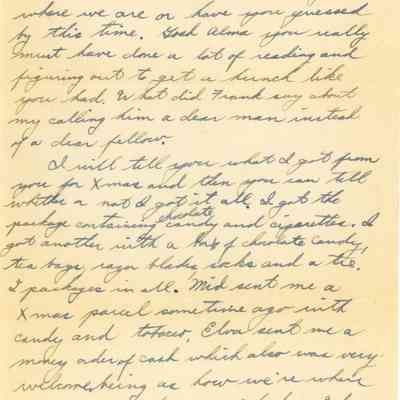 where we are or have you guessed
by this time. Gosh Alma you really
must have done a lot of reading and
figuring out to get a hunch like
you had. What did Frank say about
my calling him a dear man instead
of a dear fellow.
I will tell you what I got from
you for Xmas and then you can tell
whether or not I got it all. I got the
package containing chocolate candy and cigarettes. I
got another with a box of chocolate candy,
tea bags, razor blades socks and a tie.
packages in all. Mid sent me a
Xmas parcel sometime ago with
candy and tobacco, Elva sent me a
money order of cash which also was very
welcome, being as how we're where